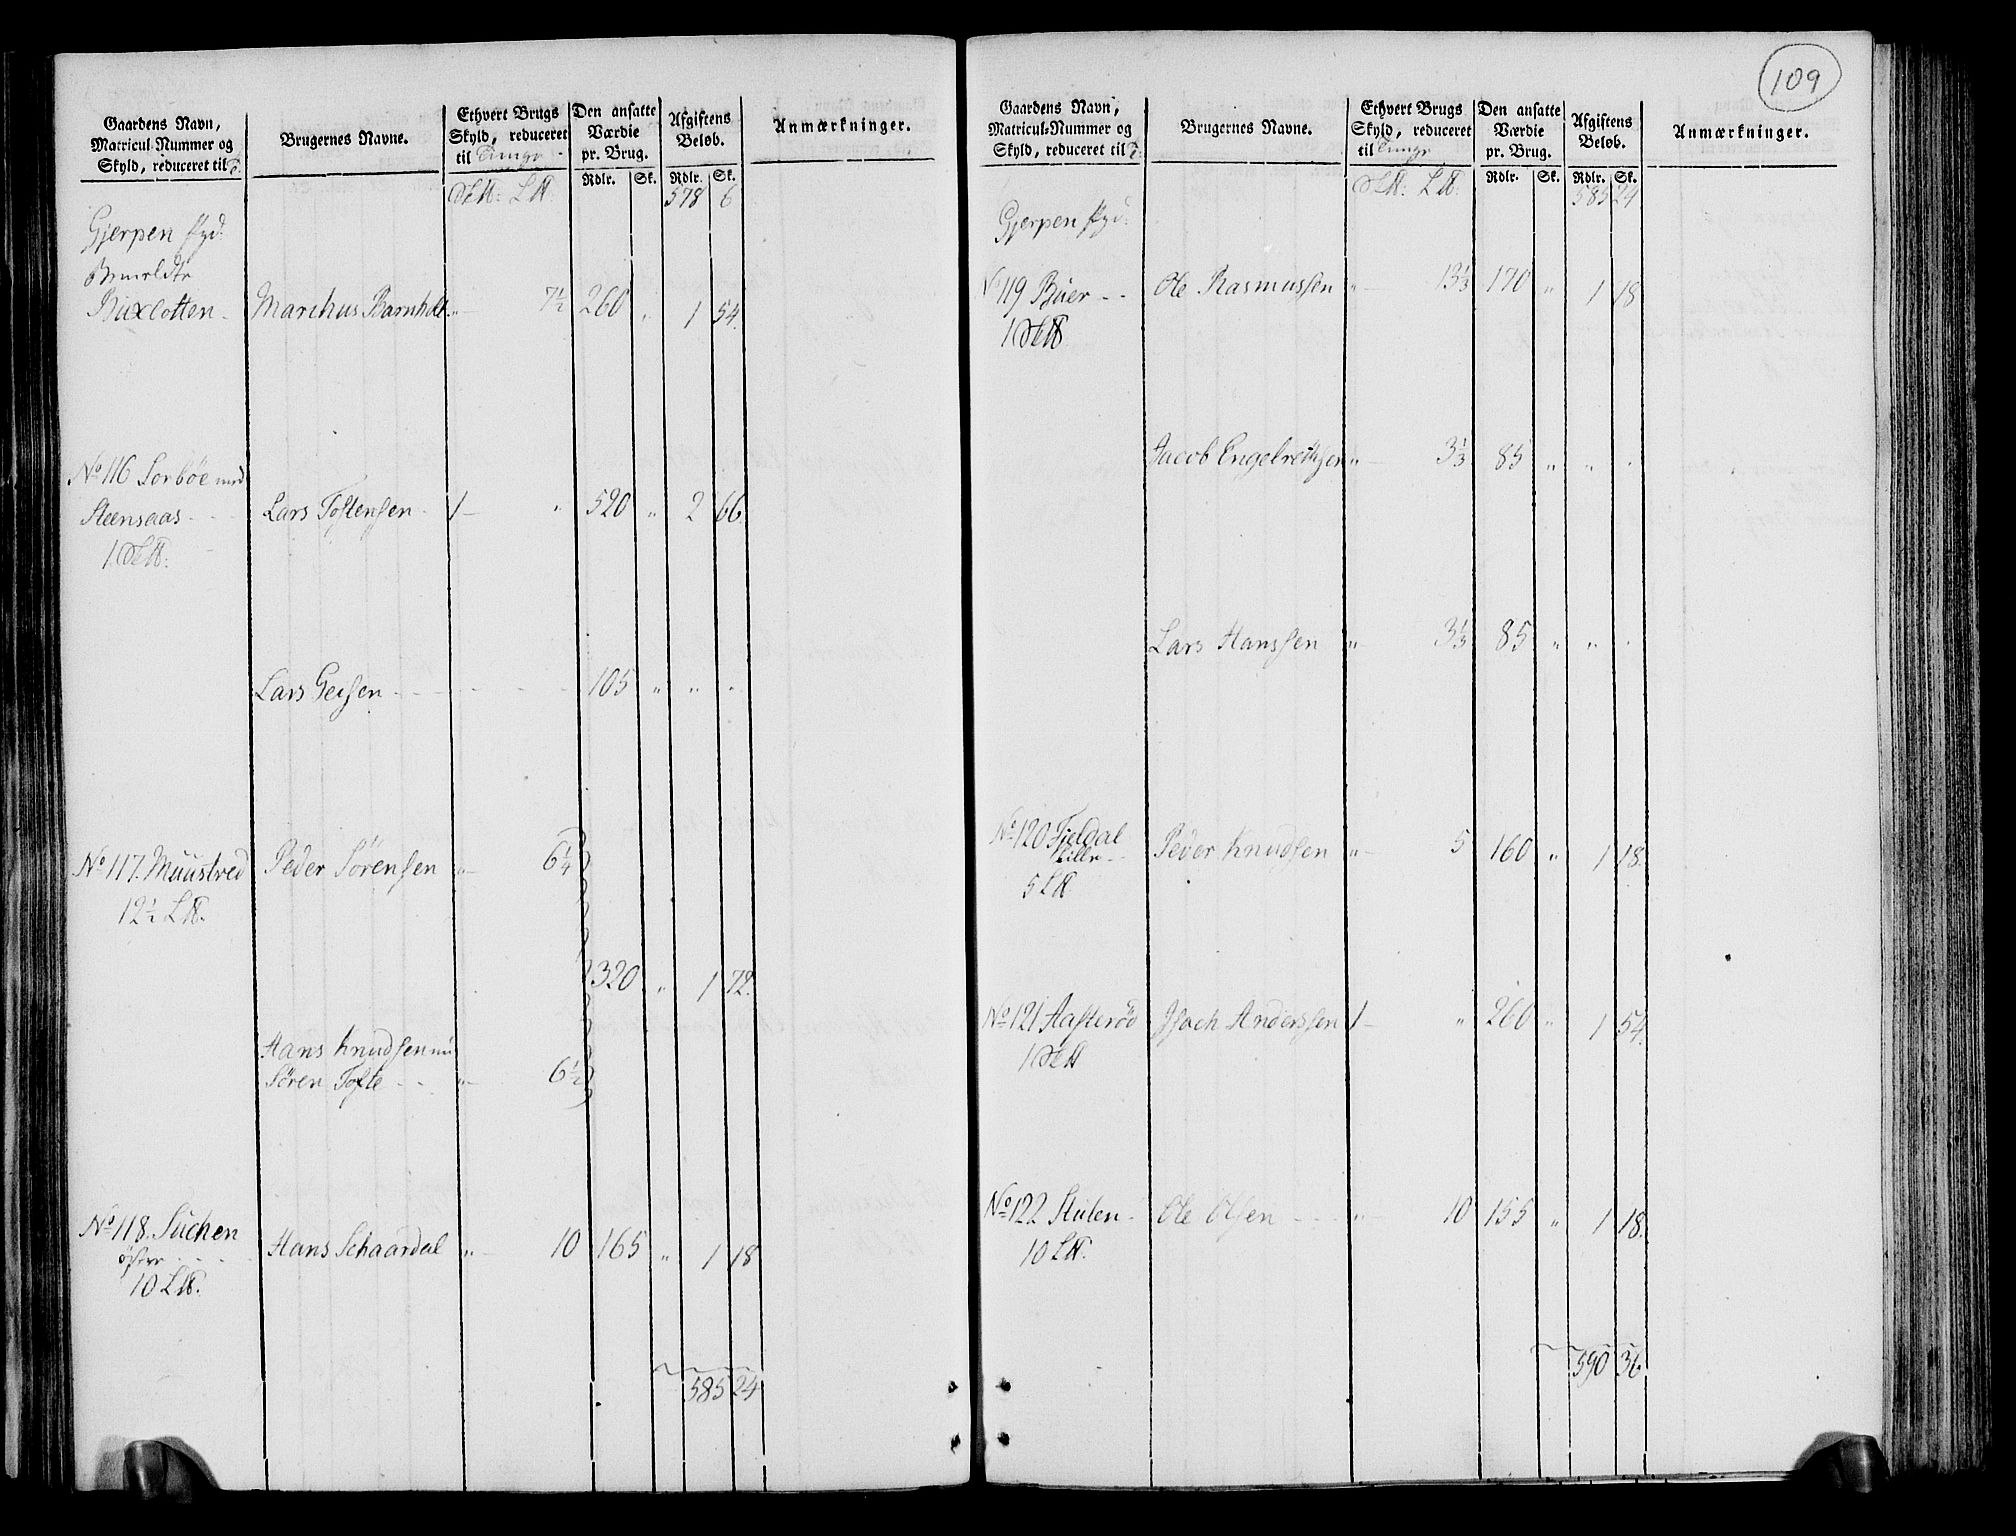 Gaardens Navn, Matricul-Nummer og Skyld, reduceret til
Brugernes Navne.
Ethvert Brugs Skyld, reduceret til Tunge
Den ansatte Værdie pr. Brug.
Afgiftens Beløb.
Anmærkninger.
Rdlr. Sk. Rdlr. Sk.
578 6
Gjerpen
Buxlotten Marchus Barnholt " 7½ 260 " 1 54.
No 116 Sorböe med
Steensaas Lars Tostensen 1 " 520 " 2 66.
1
Lars Geisen 105 " " "
No 117. Muustved Peder Sörensen " 6¼
12½ L
320 " 1 72.
Hans Knudsen
Sören Tofte " 6½
No 118. Suchen Hans Schaardal " 10 165 " 1 18
östre
10 L
585 24
109
Gaardens Navn, Matricul-Nummer og Skyld, reduceret til
Brugernes Navne.
Ethvert Brugs Skyld, reduceret til Tunge
Den ansatte Værdie pr. Brug.
Afgiftens Beløb.
Anmærkninger.
Rdlr. Sk. Rdlr. Sk.
585 24
Gjerpen
No 119 Bøer Ole Rasmussen " 13⅓ 170 " 1 18
1
Jacob Engelrechtsen " 3⅓ 85 " " "
Lars Hanssen " 3⅓ 85 " " "
No 120 Fjeldal Peder Knudsen " 5 160 " 1 18.
Lille
5 L
No 121 Aasteröd Isach Anderssen 1 " 260 " 1 54.
1
No 122 Stulen Ole Olsen " 10 155 " 1 18.
10 L
590 36